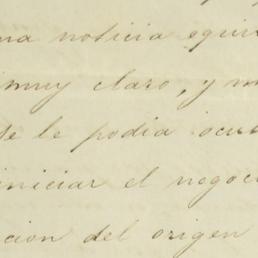 una noticia equi
muy claro, y m
se le podia ocul
iniciar el negoci
cion del origen